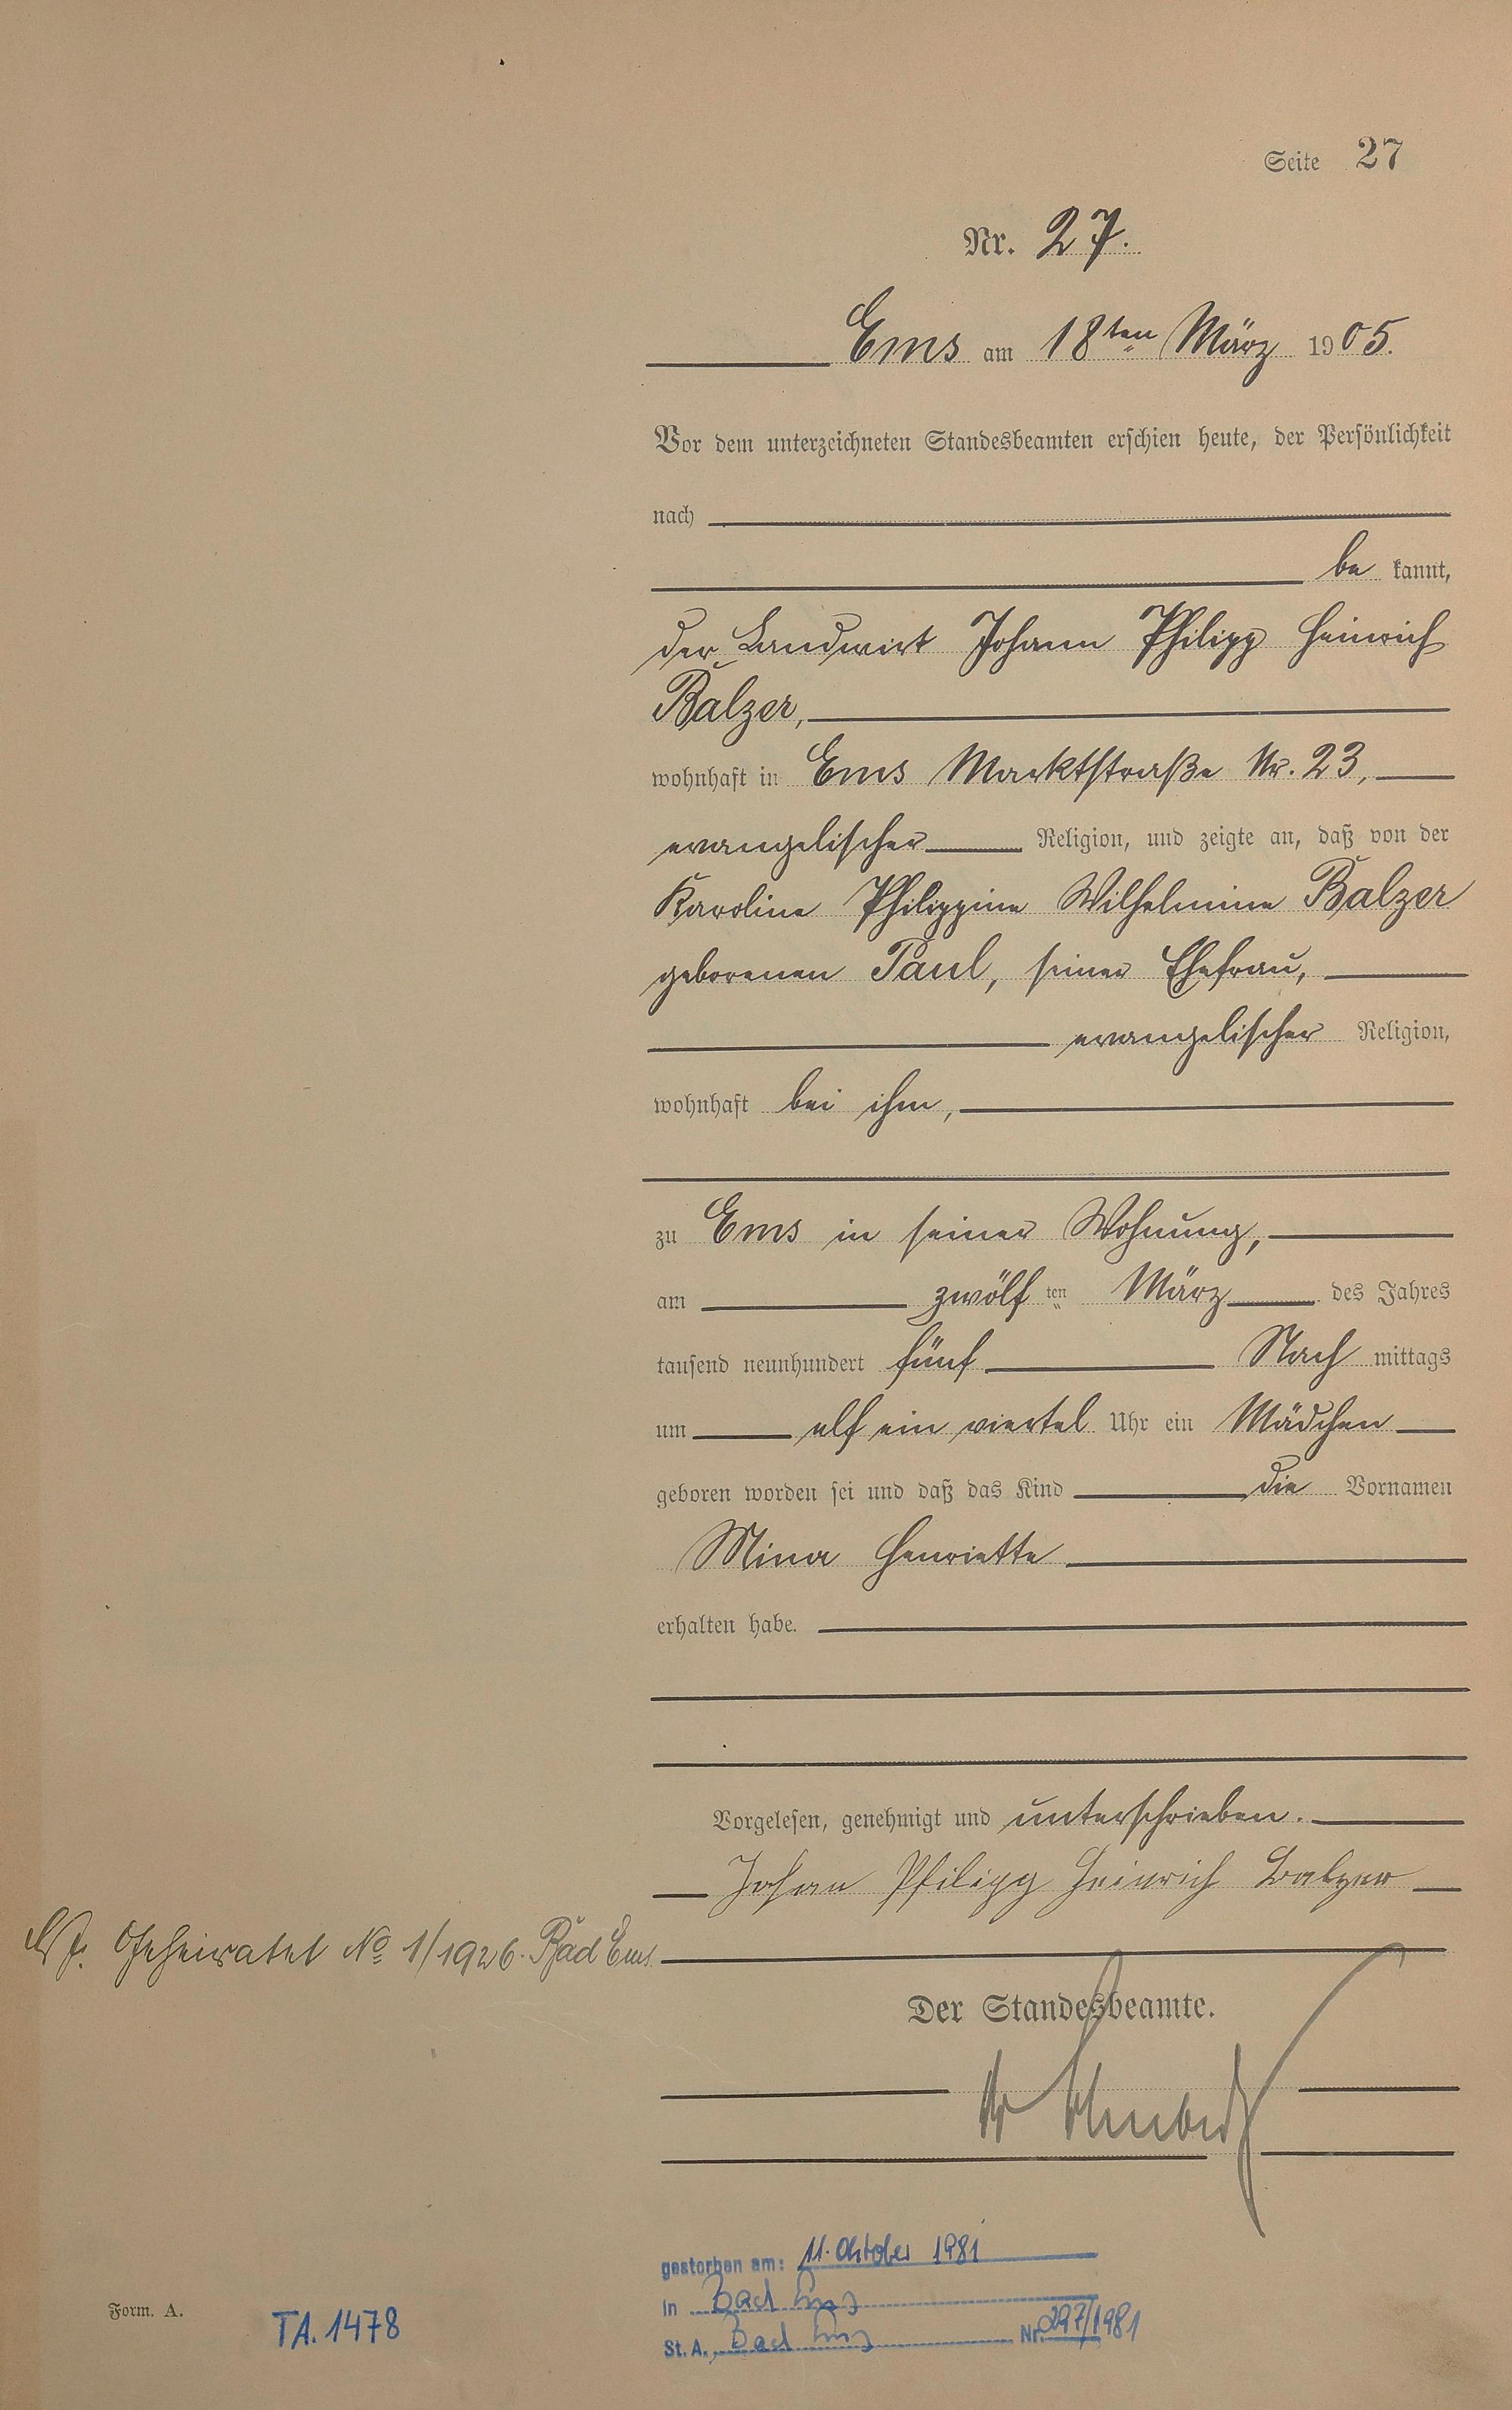 Seite 27
Nr. 27.
Ems am 18ten März 1905.
Vor dem unterzeichneten Standesbeamten erschien heute, der Persönlichkeit
nach
be kannt,
der Landwirt Johann Philipp Heinrich
Balzer,
wohnhaft in Ems Marktstraße Nr. 23,
evangelischer Religion, und zeigte an, daß von der
Karoline Philippine Wilhelmine Balzer
geborenen Paul, seiner Ehefrau,
evangelischer Religion,
wohnhaft bei ihm,
zu Ems in seiner Wohnung,
am zwölf ten März des Jahres
tausend neunhundert fünf Nach mittags
um elf ein viertel Uhr ein Mädchen
geboren worden sei und daß das Kind die Vornamen
Mina Henriette
erhalten habe.
Vorgelesen, genehmigt und unterschrieben.
Johan Philipp Heinrich Balzer
Geheiratet No 1/1926. Bad Ems.
Der Standesbeamte.
gestorben am: 11. Oktober 1981
in Bad Ems
St. A. Bad Ems Nr. 297/1981
Form. A.
TA. 1478